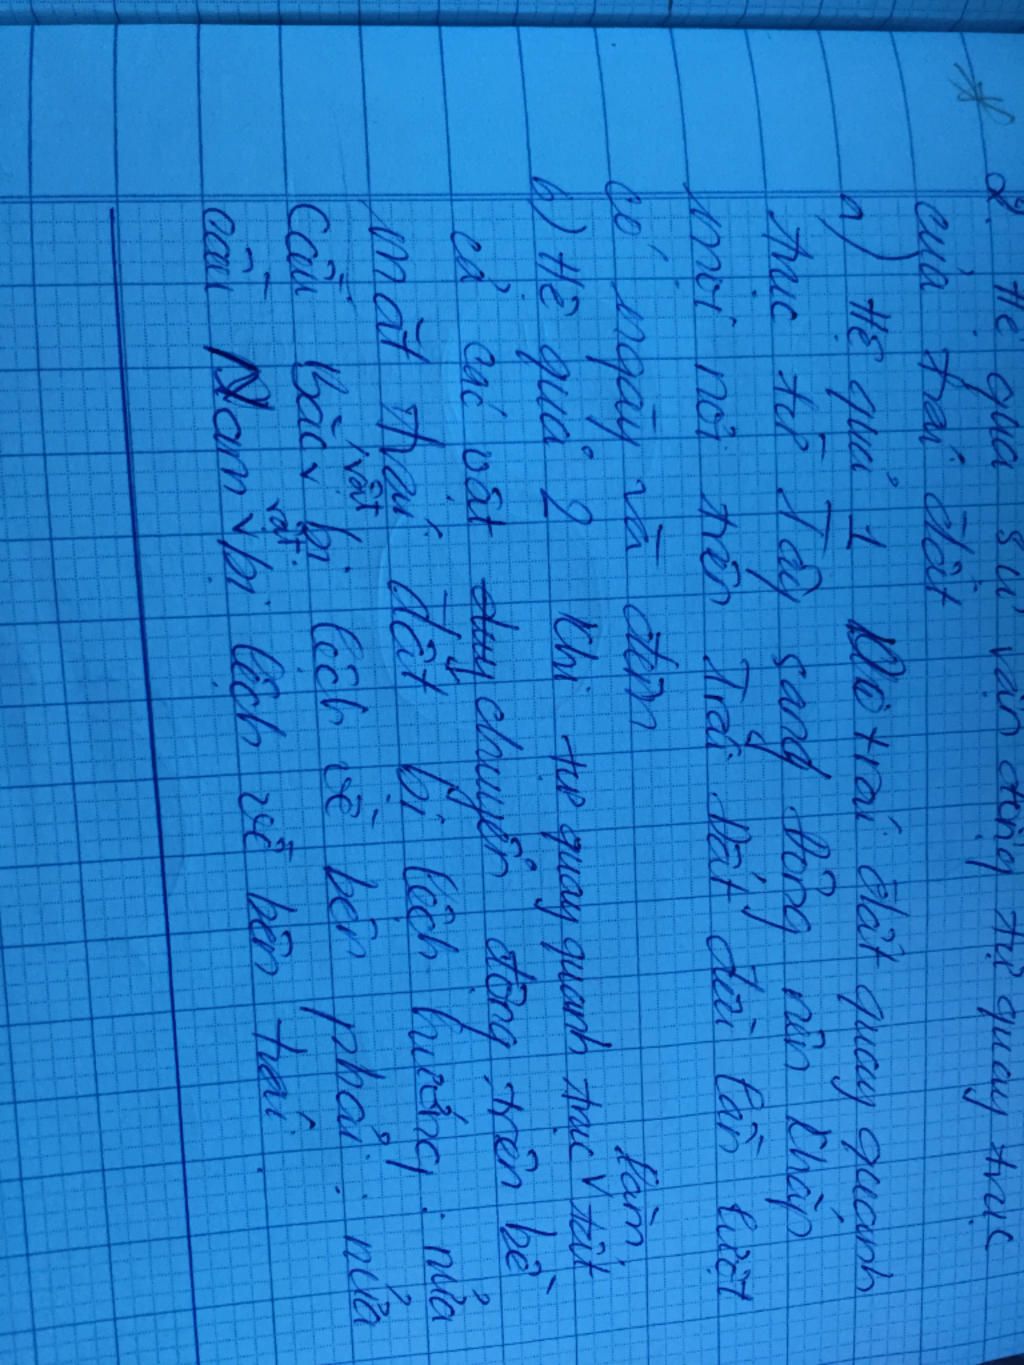 2. Hệ quả sự vận động tự quay trục
của trái đất
a) Hệ quả 1 Do trái đất quay quanh
trục từ Tây sang Đông nên khắp
mọi nơi trên Trái Đất đều lần lượt
có ngày và đêm
b) Hệ quả 2 Khi tự quay quanh trục làm tất
cả các vật chuyển động trên bề
mặt trái đất bị lệch hướng. nửa
cầu Bắc vật bị lệch về bên phải. nửa
cầu Nam vật bị lệch về bên trái.